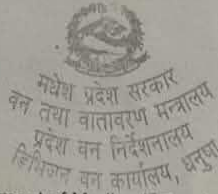 मधेश प्रदेश सरकार
वन तथा वातावरण मन्त्रालय
प्रदेश वन निर्देशनालय
डिभिजन वन कार्यालय, धनुषा